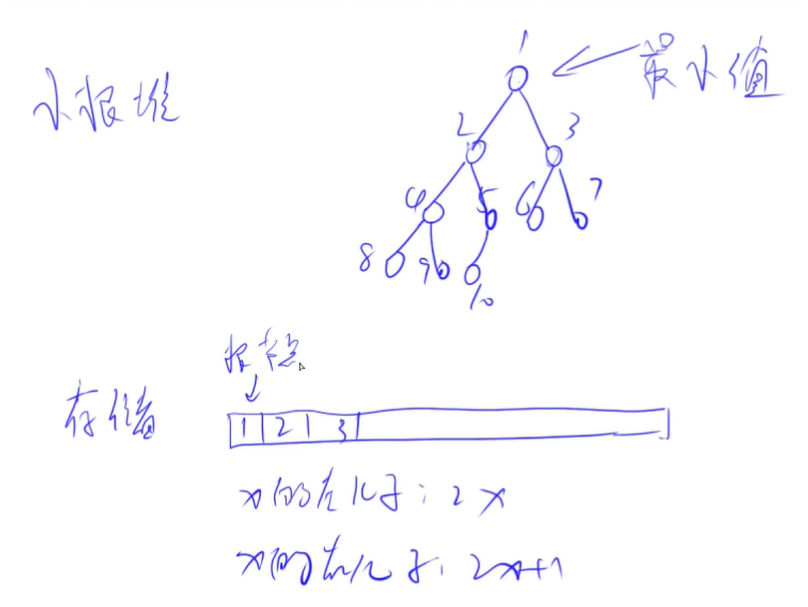 1
最小值
小根堆
2 3
4 5 6 7
8 9 10
根节点
存储
1 2 3
x的左儿子: 2x
x的右儿子: 2x+1